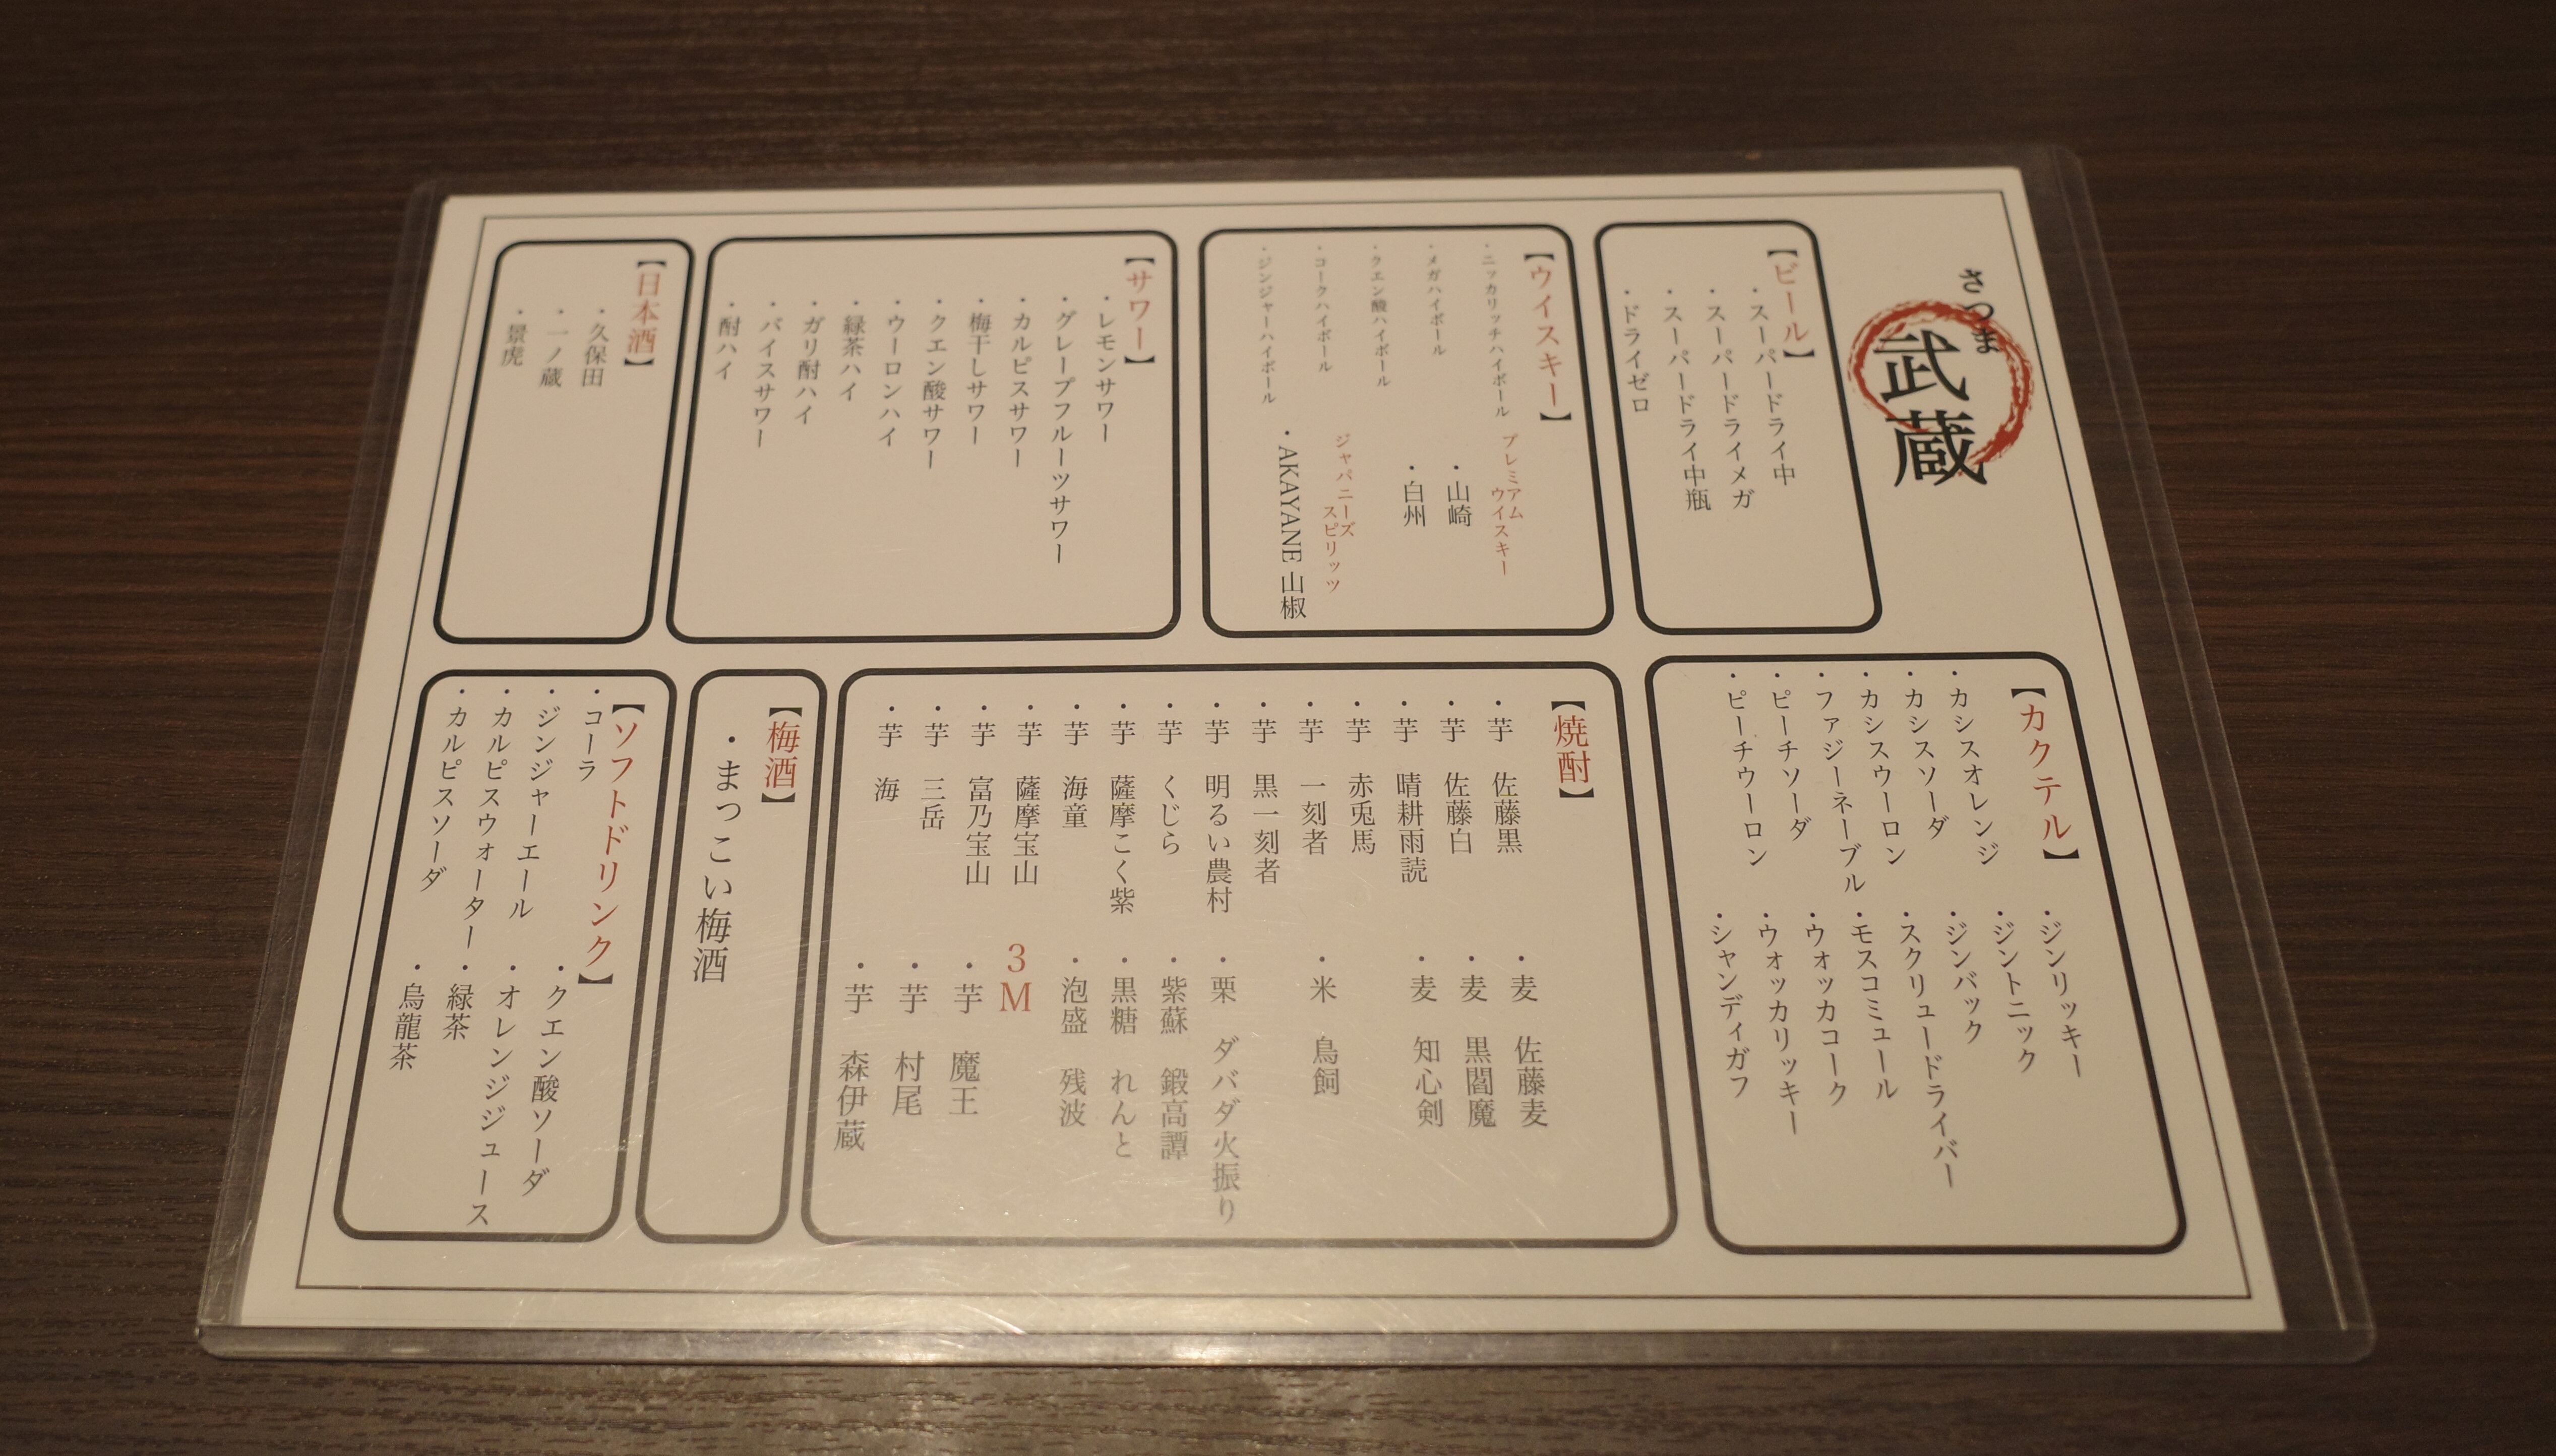 さつま
武蔵
【ビール】
・スーパードライ中
・スーパードライメガ
・スーパードライ中瓶
・ドライゼロ
【ウイスキー】
・ニッカリッチハイボール
・メガハイボール
・クエン酸ハイボール
・コークハイボール
・ジンジャーハイボール
プレミアム
ウイスキー
・山崎
・白州
ジャパニーズ
スピリッツ
・AKAYANE 山椒
【サワー】
・レモンサワー
・グレープフルーツサワー
・カルピスサワー
・梅干しサワー
・クエン酸サワー
・ウーロンハイ
・緑茶ハイ
・ガリ酎ハイ
・バイスサワー
・酎ハイ
【日本酒】
・久保田
・一ノ蔵
・景虎
【カクテル】
・カシスオレンジ
・カシスソーダ
・カシスウーロン
・ファジーネーブル
・ピーチソーダ
・ピーチウーロン
・ジンリッキー
・ジントニック
・ジンバック
・スクリュードライバー
・モスコミュール
・ウォッカコーク
・ウォッカリッキー
・シャンディガフ
【焼酎】
・芋 佐藤黒
・芋 佐藤白
・芋 晴耕雨読
・芋 赤兎馬
・芋 一刻者
・芋 黒一刻者
・芋 明るい農村
・芋 くじら
・芋 薩摩こく紫
・芋 海童
・芋 薩摩宝山
・芋 富乃宝山
・芋 三岳
・芋 海
・麦 佐藤麦
・麦 黒閻魔
・麦 知心剣
・米 鳥飼
・栗 ダバダ火振り
・紫蘇 鍛高譚
・黒糖 れんと
・泡盛 残波
3M
・芋 魔王
・芋 村尾
・芋 森伊蔵
【梅酒】
・まっこい梅酒
【ソフトドリンク】
・コーラ
・ジンジャーエール
・カルピスウォーター
・カルピスソーダ
・クエン酸ソーダ
・オレンジジュース
・緑茶
・烏龍茶